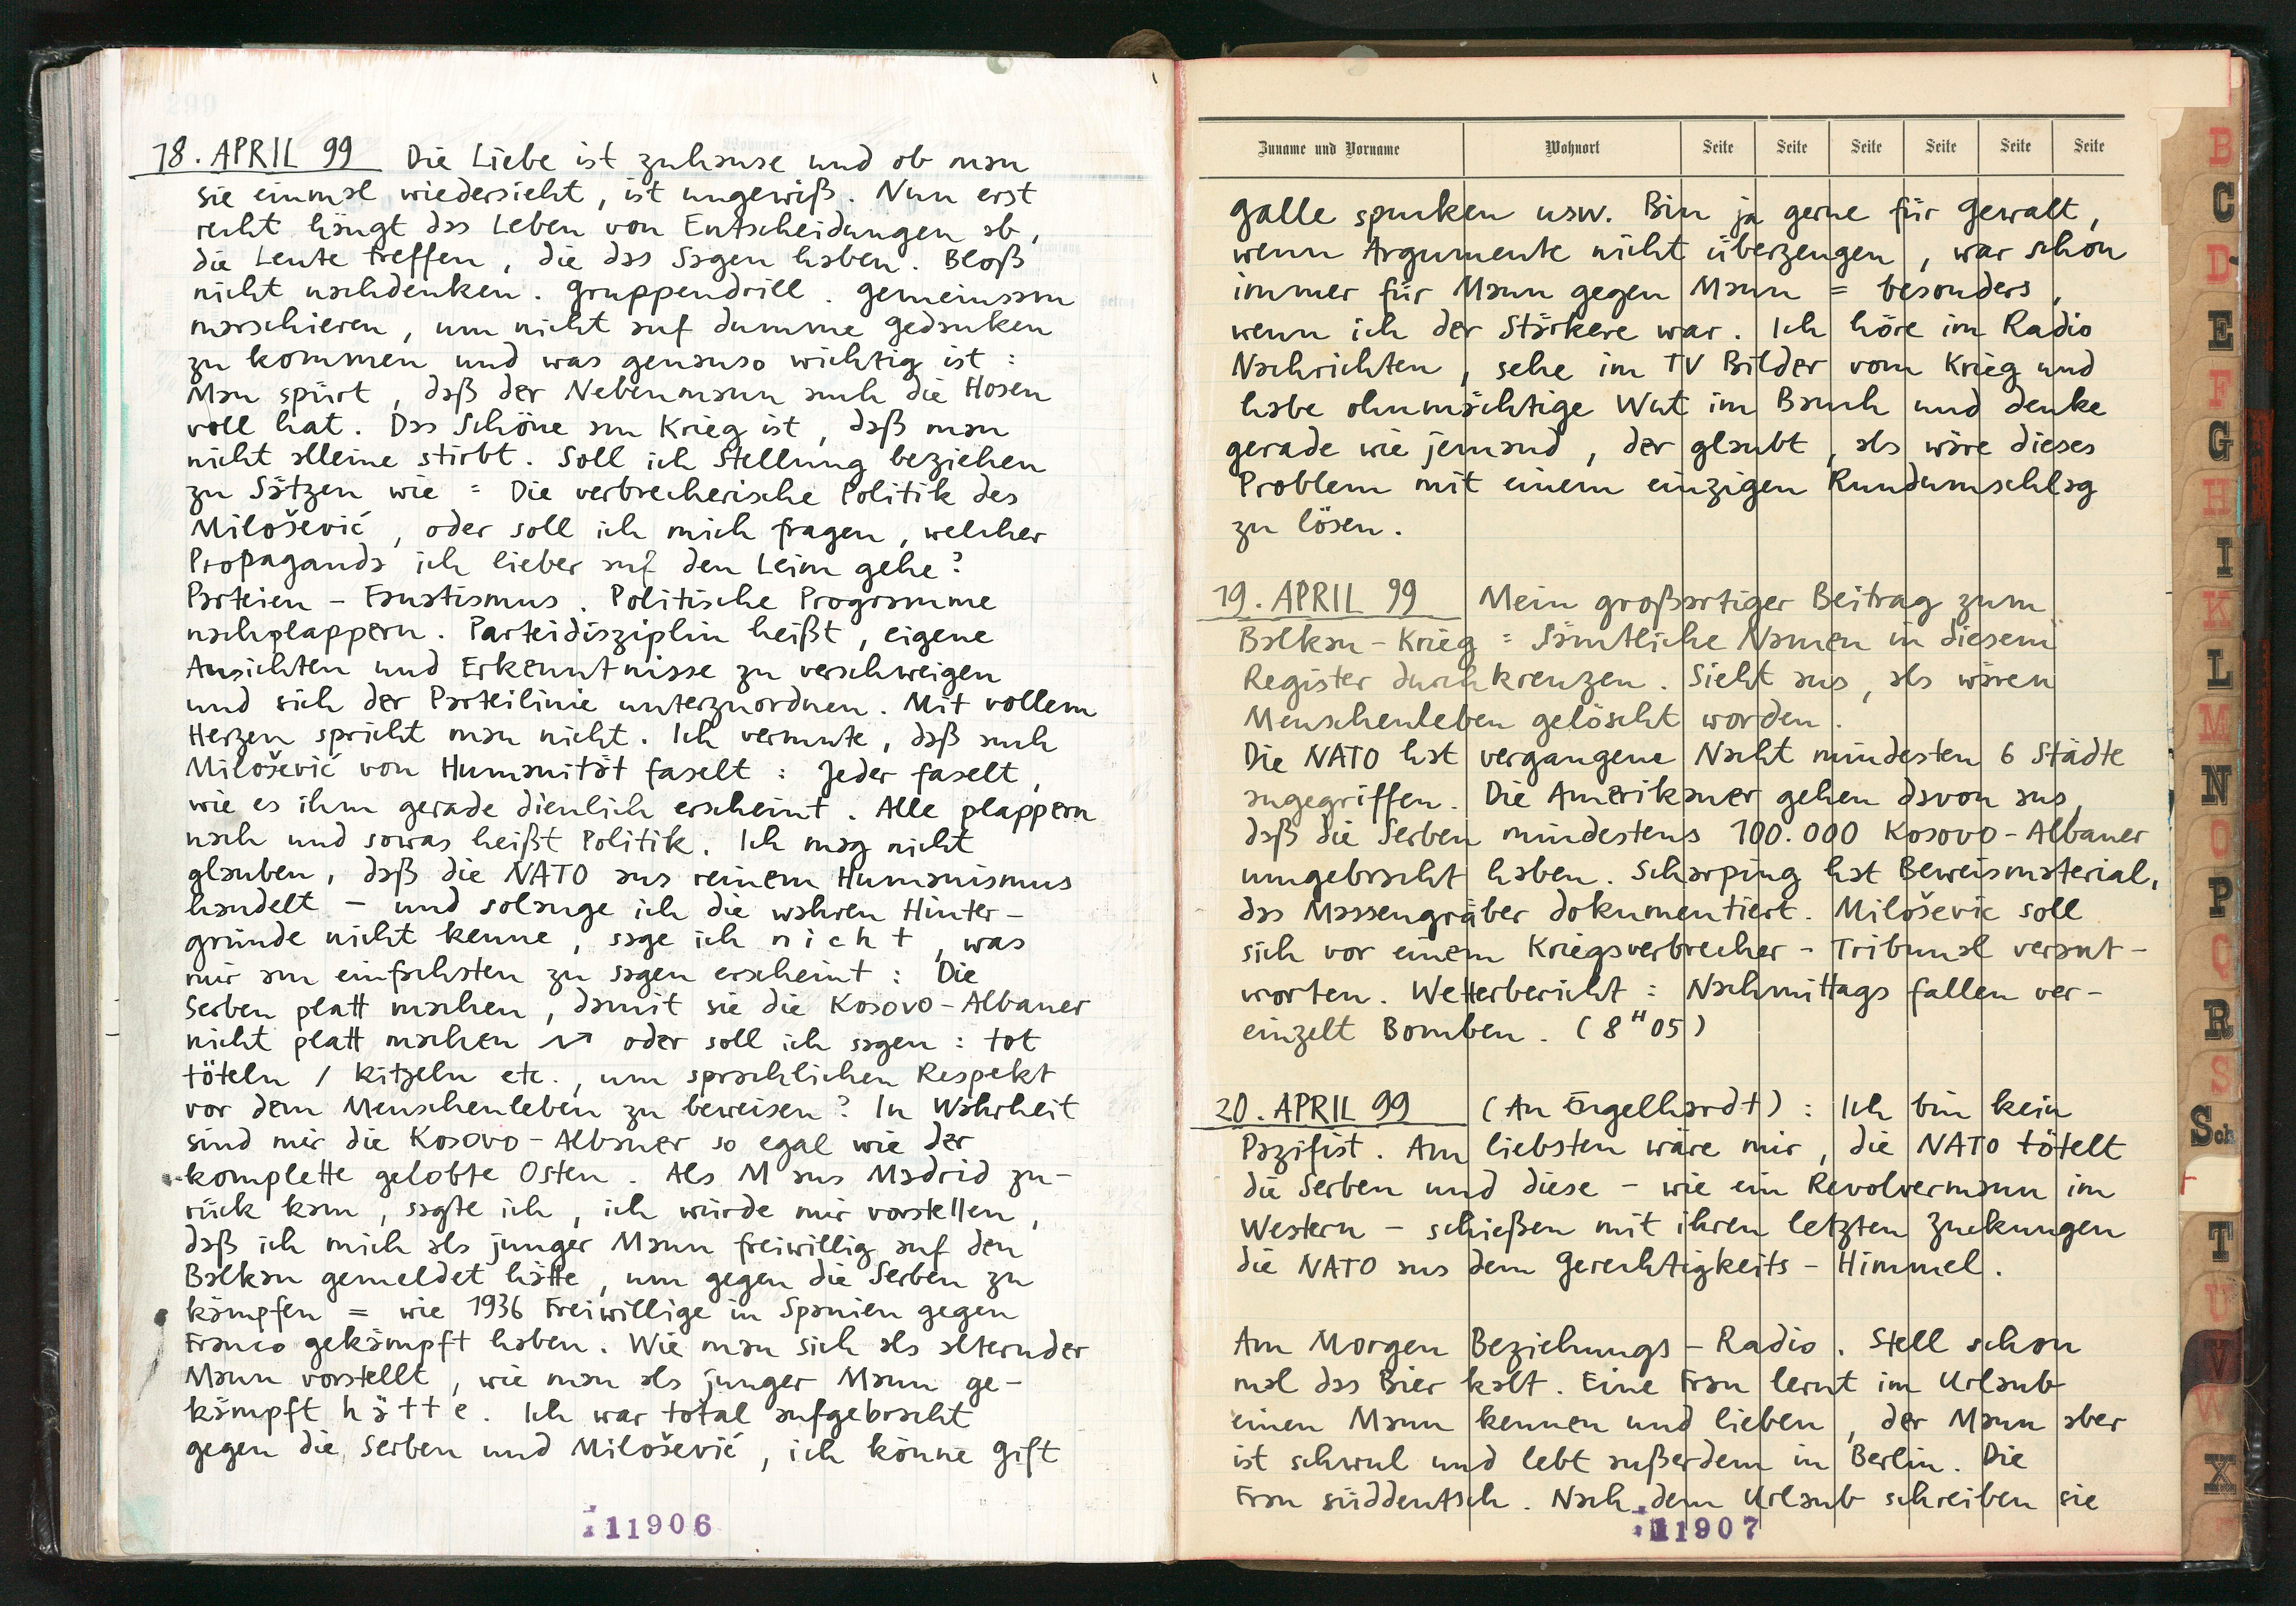 18. APRIL 99 Die Liebe ist zuhause und ob man
sie einmal wiedersieht, ist ungewiß. Nun erst
recht hängt das Leben von Entscheidungen ab,
die Leute treffen, die das Sagen haben. Bloß
nicht nachdenken. Gruppendrill. Gemeinsam
marschieren, um nicht auf dumme Gedanken
zu kommen und was genauso wichtig ist:
Man spürt, daß der Nebenmann auch die Hosen
voll hat. Das Schöne am Krieg ist, daß man
nicht alleine stirbt. Soll ich Stellung beziehen
zu Sätzen wie = Die verbrecherische Politik des
Milošević, oder soll ich mich fragen, welcher
Propaganda ich lieber auf den Leim gehe?
Parteien - Faustismus. Politische Programme
nachplappern. Parteidisziplin heißt, eigene
Ansichten und Erkenntnisse zu verschweigen
und sich der Parteilinie unterzuordnen. Mit vollem
Herzen spricht man nicht. Ich vermute, daß auch
Milošević von Humanität faselt: Jeder faselt,
wie es ihm gerade dienlich erscheint. Alle plappern
nach und sowas heißt Politik. Ich mag nicht
glauben, daß die NATO aus reinem Humanismus
handelt - und solange ich die wahren Hinter-
gründe nicht kenne, sage ich nicht, was
mir am einfachsten zu sagen erscheint: Die
Serben platt machen, damit sie die Kosovo-Albaner
nicht platt machen oder soll ich sagen: tot
töteln / kitzeln etc., um sprachlichen Respekt
vor dem Menschenleben zu beweisen? In Wahrheit
sind mir die Kosovo-Albaner so egal wie der
komplette gelobte Osten. Als M aus Madrid zu-
rück kam, sagte ich, ich würde mir vorstellen,
daß ich mich als junger Mann freiwillig auf den
Balkan gemeldet hätte, um gegen die Serben zu
kämpfen = wie 1936 Freiwillige in Spanien gegen
Franco gekämpft haben. Wie man sich als alternder
Mann vorstellt, wie man als junger Mann ge-
kämpft hätte. Ich war total aufgebracht
gegen die Serben und Milošević, ich könne Gift
11906
Zuname und Vorname Wohnort Seite Seite Seite Seite Seite Seite
Galle spucken usw. Bin ja gerne für Gewalt,
wenn Argumente nicht überzeugen, war schon
immer für Mann gegen Mann = besonders,
wenn ich der Stärkere war. Ich höre im Radio
Nachrichten, sehe im TV Bilder vom Krieg und
habe ohnmächtige Wut im Bauch und denke
gerade wie jemand, der glaubt, als wäre dieses
Problem mit einem einzigen Rundumschlag
zu lösen.
19. APRIL 99 Mein großartiger Beitrag zum
Balkan-Krieg = Sämtliche Namen in diesem
Register durchkreuzen. Sieht aus, als wären
Menschenleben gelöscht worden.
Die NATO hat vergangene Nacht mindesten 6 Städte
angegriffen. Die Amerikaner gehen davon aus,
daß die Serben mindestens 100.000 Kosovo-Albaner
umgebracht haben. Scharping hat Beweismaterial,
das Massengräber dokumentiert. Milošević soll
sich vor einem Kriegsverbrecher-Tribunal verant-
worten. Wetterbericht: Nachmittags fallen ver-
einzelt Bomben. (8 H 05)
20. APRIL 99 (An Engelhardt): Ich bin kein
Pazifist. Am liebsten wäre mir, die NATO tötelt
die Serben und diese - wie ein Revolvermann im
Western - schießen mit ihren letzten Zuckungen
die NATO aus dem Gerechtigkeits-Himmel.
Am Morgen Beziehungs-Radio. Stell schon
mal das Bier kalt. Eine Frau lernt im Urlaub
einen Mann kennen und lieben, der Mann aber
ist schwul und lebt außerdem in Berlin. Die
Frau süddeutsch. Nach dem Urlaub schreiben sie
11907
B
C
D
E
F
G
H
I
K
L
M
N
O
P
Q
R
S
Sch
T
U
V
W
X